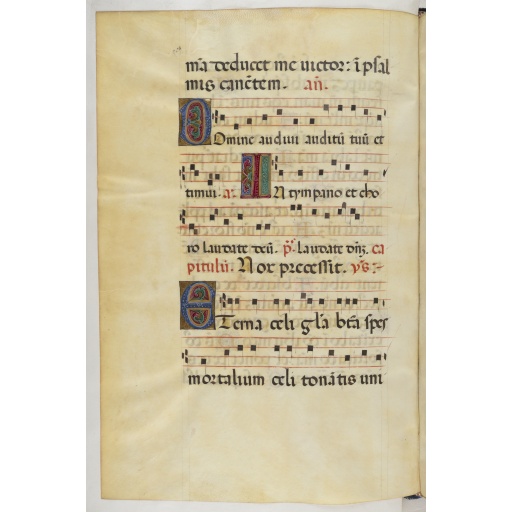 mā deducet me victor: ī psal
mis canētem. añ.
Domine audivi auditū tuū et
timui. a. In tympano et cho
ro laudate deū. p̄. Laudate dn̄ȝ. ca
pitulū. Nox precessit. ys.
Eterna celi gl̄a bēa spes
mortalium celi tonātis uni